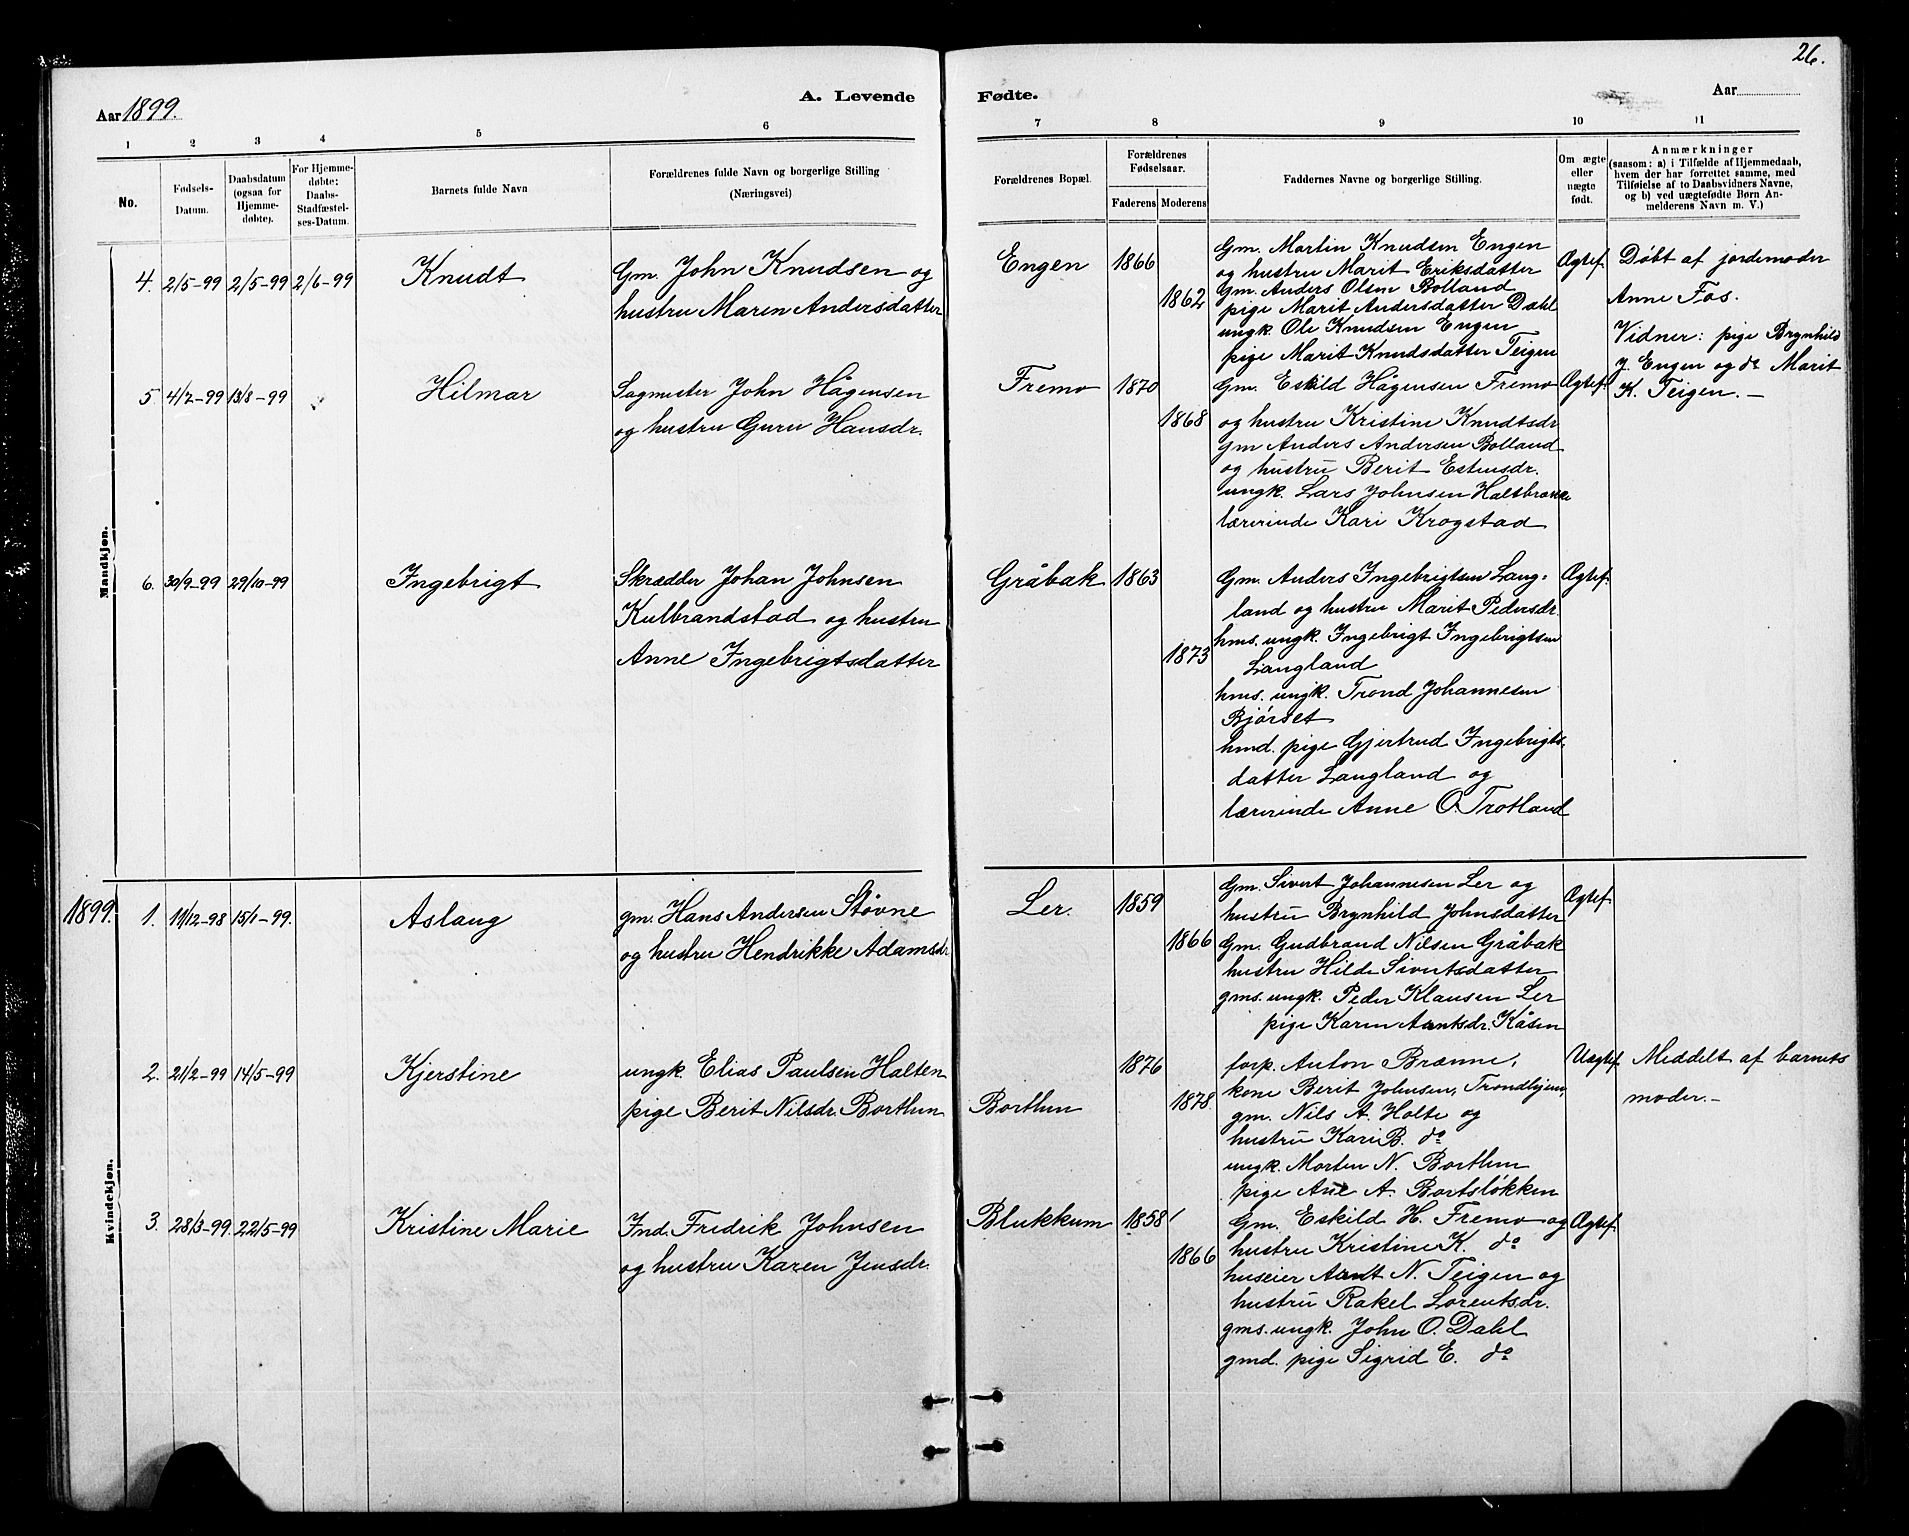 26.
Aar 1899.
A. Levende Fødte.
Aar
1 2 3 4 5 6 7 8 9 10 11
No.
Fødsels-
Datum.
Daabsdatum
(ogsaa for
Hjemme-
døbte).
For Hjemme-
døbte:
Daabs-
Stadfæstel-
ses-Datum.
Barnets fulde Navn
Forældrenes fulde Navn og borgerlige Stilling
(Næringsvei)
Forældrenes Bopæl.
Forældrenes
Fødselsaar.
Faderens Moderens
Faddernes Navne og borgerlige Stilling.
Om ægte
eller
uægte
født.
Anmærkninger
(saasom: a) i Tilfælde af Hjemmedaab,
hvem der har forrettet samme, med
Tilføielse af to Daabsvidners Navne,
og b) ved uægtefødte Børn An-
melderens Navn m. V.)
Mandkjøn.
4. 2/5-99 2/5-99 2/6-99 Knudt
Gm. John Knudsen og
hustru Maren Andersdatter
Engen 1866
1862
Gm. Martin Knudsen Engen
og hustru Marit Eriksdatter
Gm. Anders Olsen Bolland
pige Marit Andersdatter Dahl
ungk. Ole Knudsen Engen
pige Marit Knudsdatter Teigen
Ægtef.
Døbt af jordemoder
Anne Fos.
Vidner: pige Brynhild
J. Engen og do Marit
K. Teigen. —
5 4/7-99 13/8-99 Hilmar
Sagmester John Hågensen
og hustru Guru Hansdr.
Fremo 1870
1868
Gm. Eskild Hågensen Fremo
og hustru Kristine Knudtsdr
gm Anders Andersen Bolland
og hustru Berit Estensdr.
ungk. Lars Johnsen Haltbrække
lærerinde Kari Krogstad
Ægtef.
6. 30/9-99 29/10-99 Ingebrigt
Skrædder Johan Johnsen
Kulbrandstad og hustru
Anne Ingebrigtsdatter
Gråbak 1863
1873
Gm. Anders Ingebrigtsen Lang-
land og hustru Marit Pedersdr.
hms. ungk. Ingebrigt Ingebrigtsen
Langland
hms. ungk. Trond Johannesen
Bjørset
hmd. pige Gjertrud Ingebrigts-
datter Langland og
lærerinde Anne O. Trotland
Ægtef.
1899.
Kvindekjøn.
1. 11/12-98 15/1-99. Aslaug
gm. Hans Andersen Støvne
og hustru Hendrikke Adamsdr
Ler. 1859
1866
Gm. Sivert Johannesen Ler og
hustru Brynhild Johnsdatter
Gm. Gudbrand Nilsen Gråbak
hustru Hilde Sivertsdatter
gms. ungk. Peder Klausen Ler
pige Karen Arntsdr. Kåsen
Ægtef.
2. 21/2-99 14/5-99 Kjerstine
ungk. Elias Paulsen Halten
pige Berit Nilsdr. Borthen
Borthen
1876
1878
forp. Anton Brænne,
kone Berit Johnsen, Trondhjem,
gm. Nils A. Holte og
hustru Kari B. do
ungk. Morten N. Borthen
pige Ane A. Bortsløkken
Uægtef.
Meddelt af barnets
moder. —
3. 28/3-99. 22/5-99 Kristine Marie
Ind. Fredrik Johnsen
og hustru Karen Jensdr.
Blukkum 1858
1866
Gm. Eskild H. Fremo og
hustru Kristine K. do
huseier Arnt N. Teigen og
hustru Rakel Lorentsdr.
gms. ungk. John O. Dahl
gmd. pige Sigrid E. do
Ægtef.